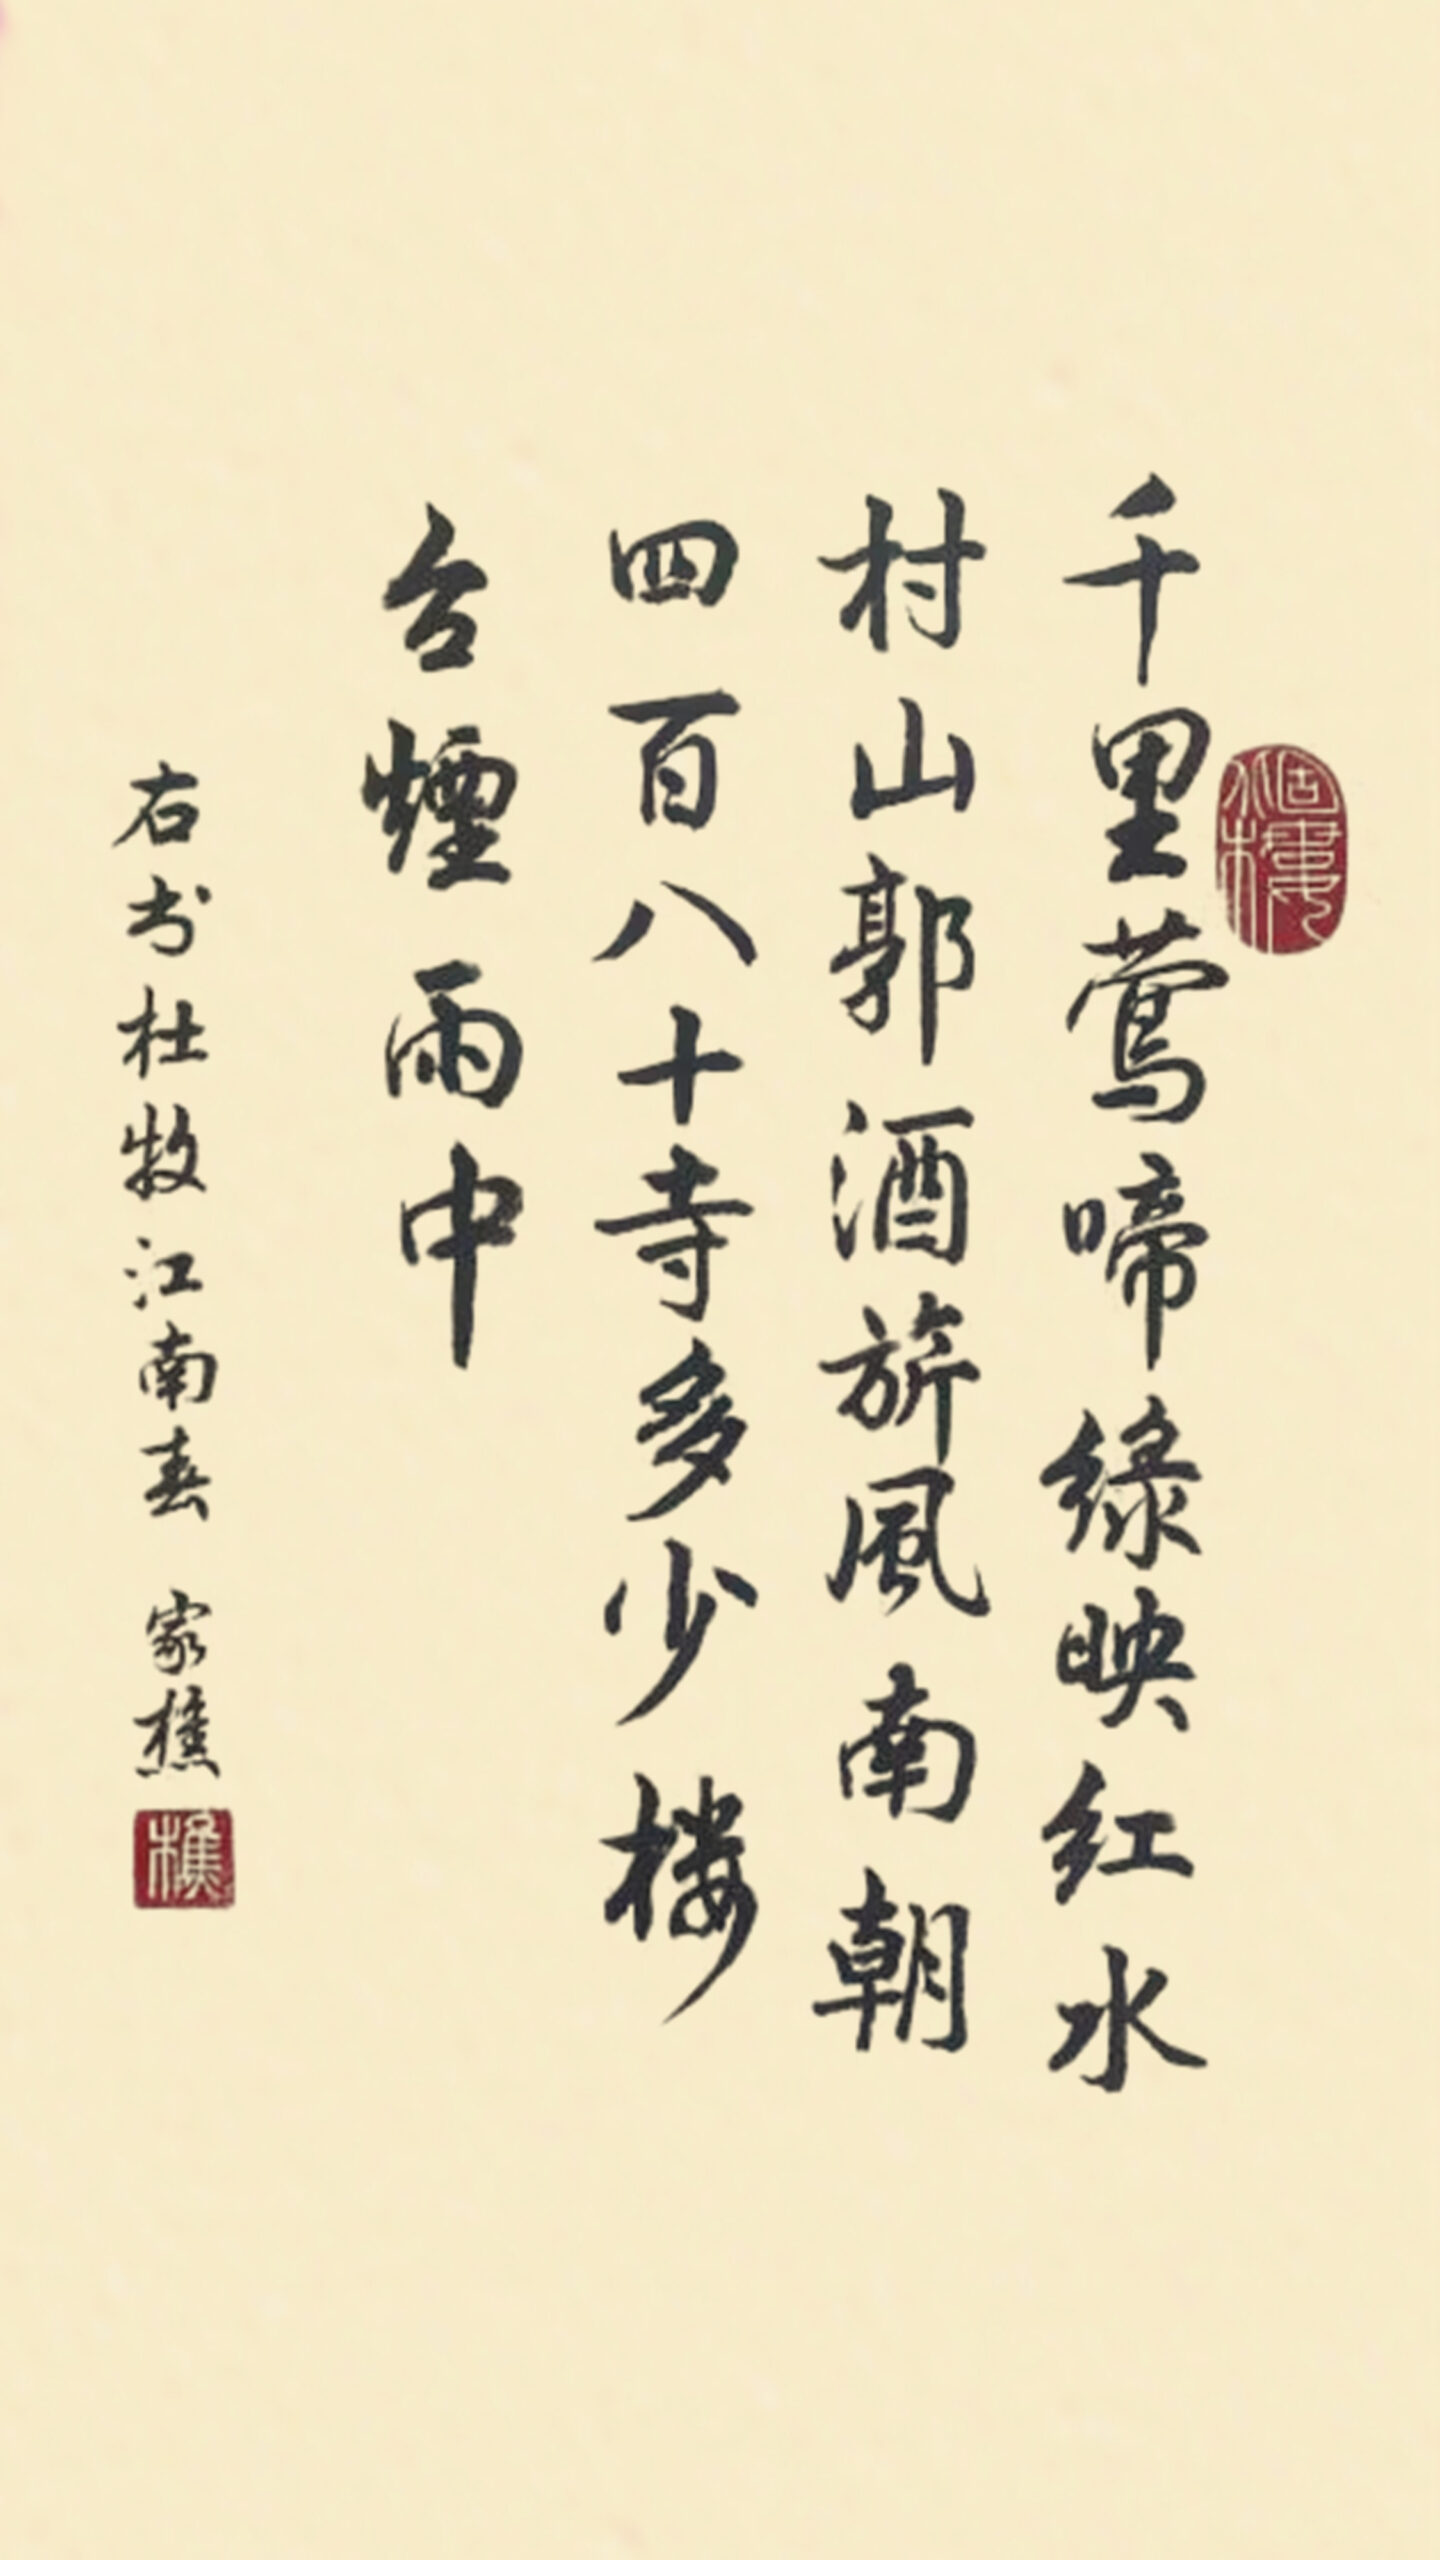 千里莺啼綠映红水
村山郭酒旂風南朝
四百八十寺多少楼
台煙雨中
右书杜牧江南春 家樵
樵